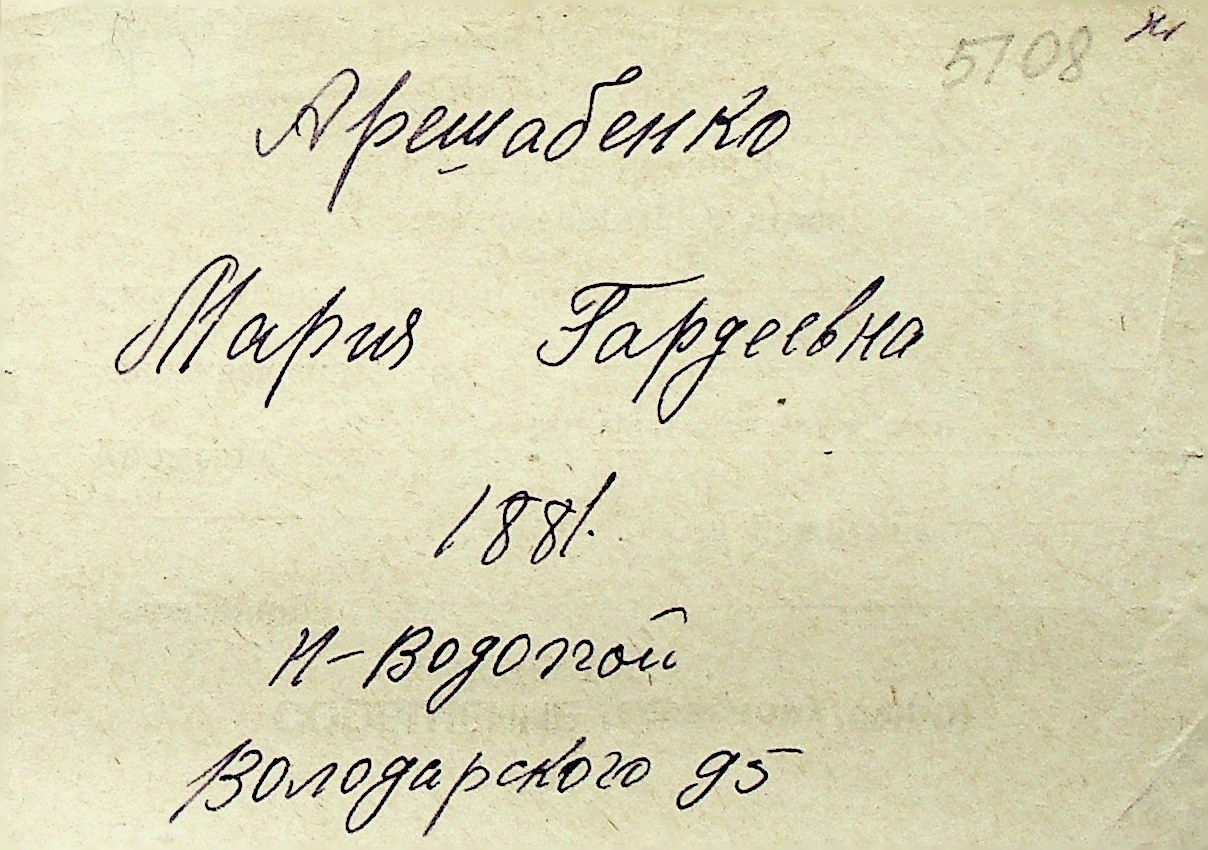 5108
Арешабенко
Мария Гардеевна
1881.
Н-Водопой
Володарского д5